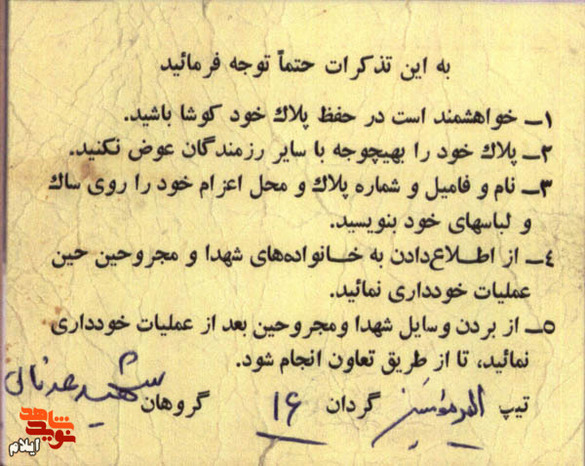 به این تذکرات حتماً توجه فرمائید
۱ــ خواهشمند است در حفظ پلاك خود کوشا باشید.
۲ــ پلاك خود را بهیچوجه با سایر رزمندگان عوض نکنید.
۳ــ نام و فامیل و شماره پلاك و محل اعزام خود را روی ساك
و لباسهای خود بنویسید.
٤ــ از اطـلاع‌دادن به خـانواده‌های شهدا و مجروحین حین
عملیات خودداری نمائید.
۵ــ از بردن وسایل شهدا ومجروحین بعد از عملیات خودداری
نمائید، تا از طریق تعاون انجام شود.
تیپ امیرمؤمنین گردان ۱۶ گروهان شهید
شاهد
نوید
ایلام